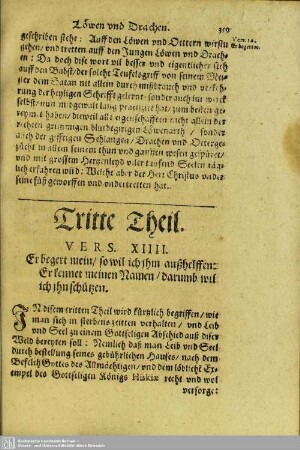 Löwen vnd Drachen.
geschriben steht: Auff den Löwen vnd Ottern wirstu
gehen/ vnd tretten auff den Jungen Löwen vnd Drach-
en: Da doch dise wort vil besser vnd eigentlicher sich
auff den Babst/ der solche Teufelsgriff von seinem Mei-
ster dem Satan nit allein durch mißbrauch vnd verkeh-
rung der heyligen Schrifft gelernt/ sondern auch im werck
selbst/ nun in gewalt lang practiciert hat/
haben/ dieweil alle eigenschafften nicht allein der
rechten grimmigen blurdgirigen Löwenarth/ sonder
auch der gifftigen Schlangen/ Drachen vnd Otterge-
zücht in allem seinem thun vnd gantzen wesen gespüret/
vnd mit grossem Hertzenleyd viler tausend Seelen täg-
lich erfahren wird: Welcht aber der Herr Christus vnder
seine füß geworffen vnd vndertretten hat.
Tritte Theil.
VERS. XIIII.
Er begert mein/ so wil ich jhm außhelffen:
Er kennet meinen Namen/ darumb wil
ich jhn schützen.
IN disem tritten Theil wird kürtzlich begriffen/ wie
man sich in sterbenszeitten verhalten/ vnd Leib
vnd Seel zu einem Gottseligen Abschied auß diser
Welt bereyten soll: Nemlich daß man Leib vnd Seel
durch bestellung seines gebührlichen Hauses/ nach dem
Befelch Gottes des Allmächtigen/ vnd dem löblichē Ex-
empel des Gottseligen Königs Hiskiæ recht vnd wol
versorge: